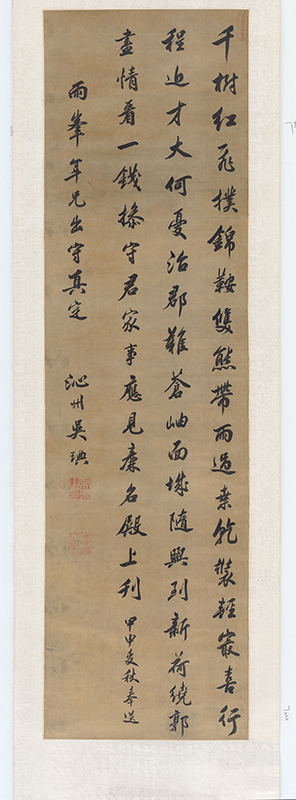 千樹紅飛撲錦鞍雙熊帶雨過桑乾裝輕最喜行
程近才大何憂治郡難蒼岫面城隨興到新荷繞郭
盡情看一錢操守君家事應見廉名殿上刊 甲申麦秋奉送
雨峯年兄出守真定 沁州吳琠